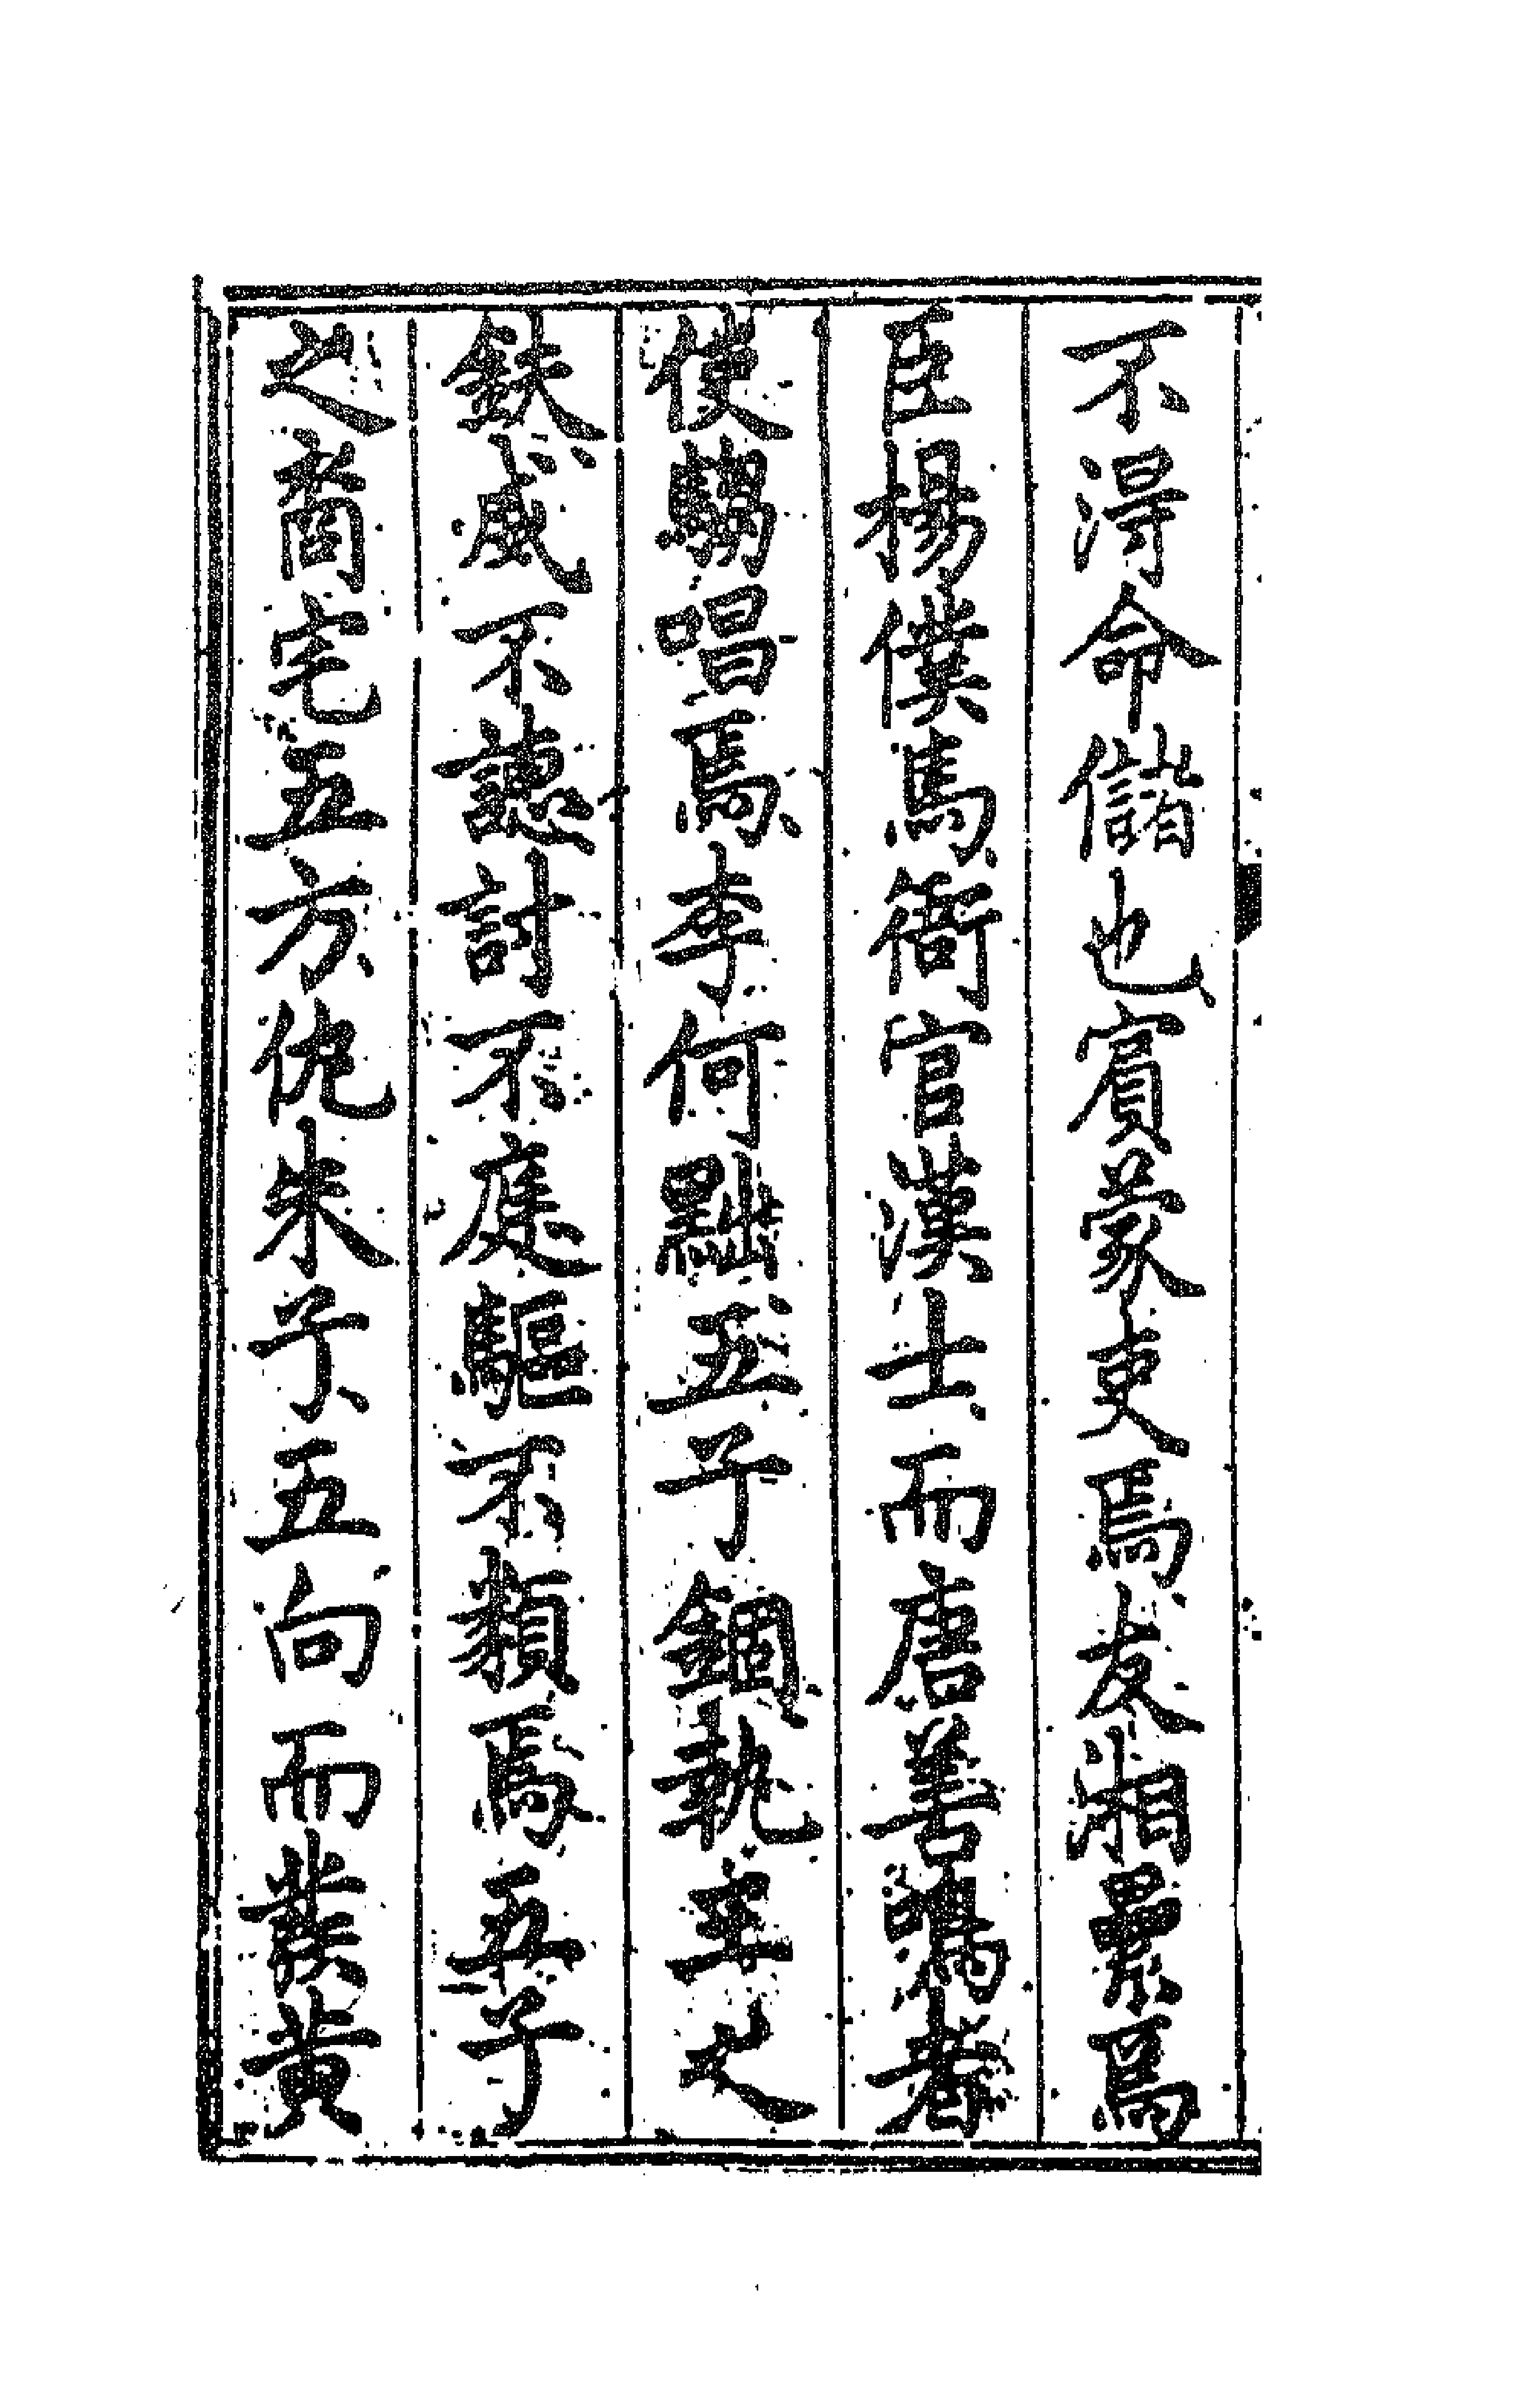 不得命儲也賓蒙吏焉友湘纍焉
臣揚僕馬衙官漢士而唐善鳴者
使驕唱焉李何黜五子錮執牢之
鈇威不譓討不庭驅不類焉五子
之裔宅五方仇朱子五向而叢黃